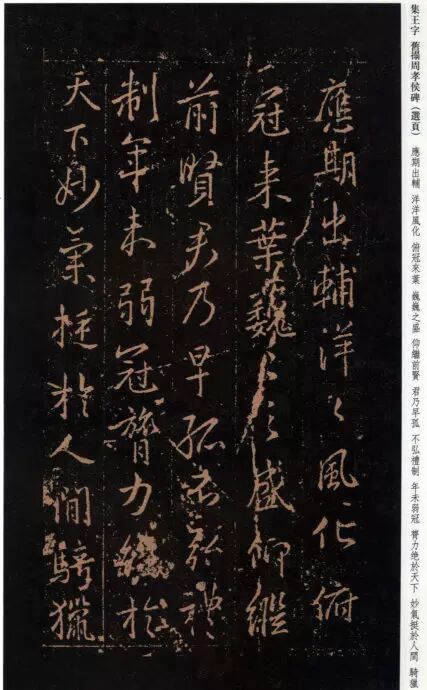 集王字 舊搨周孝侯碑（選頁） 應期出輔 洋洋風化 俯冠來葉 巍巍之盛 仰繼前賢 君乃早孤 不弘禮制 年未弱冠 膂力絕於天下 妙氣挺於人間 騎獵
應期出輔洋〻風化俯
冠来葉巍〻之盛仰繼
前賢君乃早孤不弘禮
制年未弱冠膂力絕於
天下妙氣挺於人間騎獵